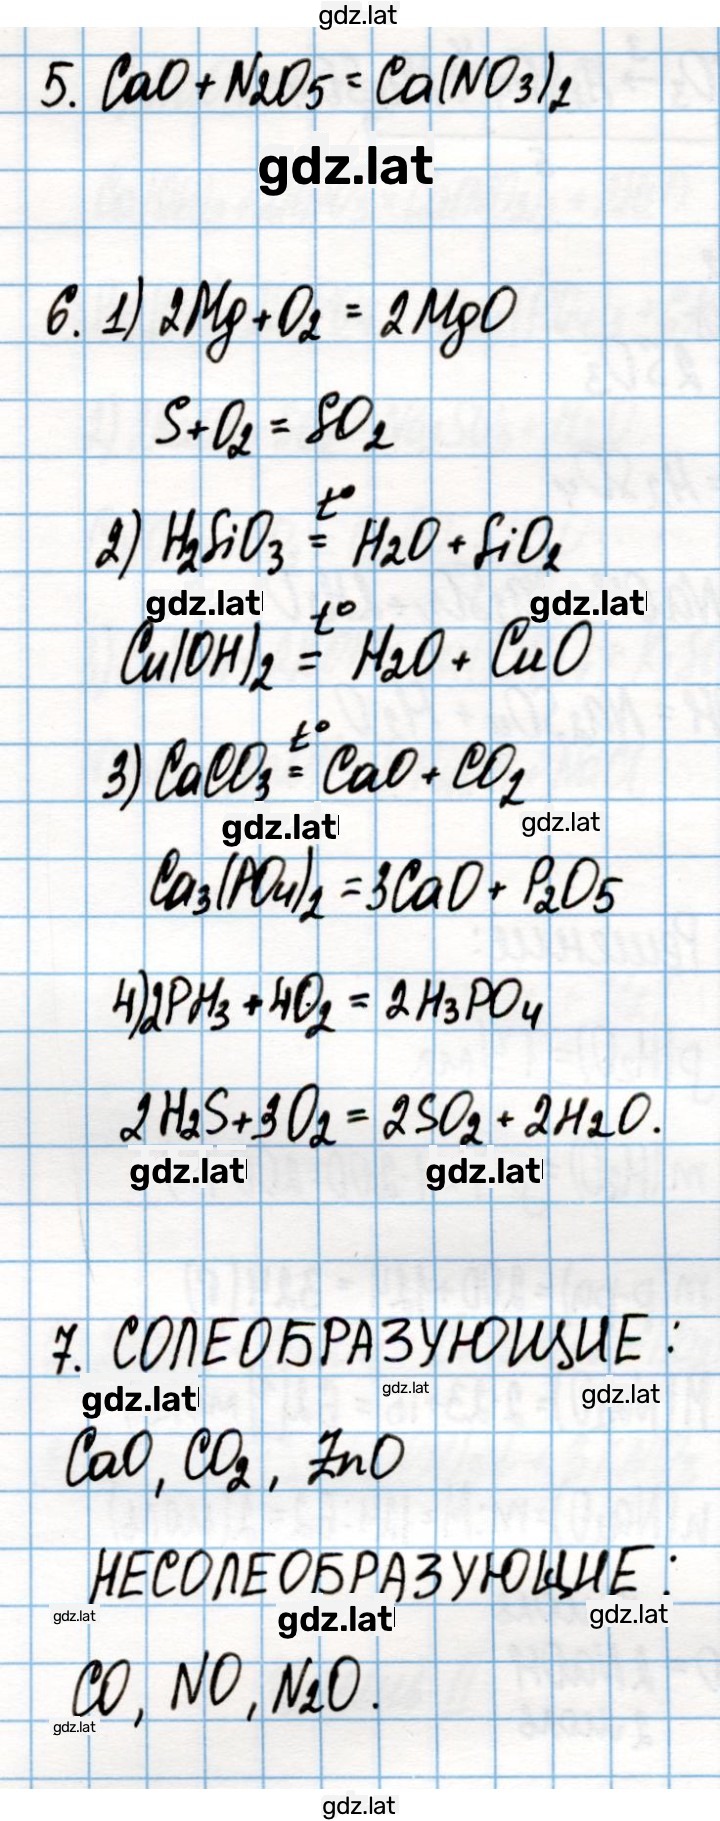 gdz.lat
5. CaO + N2O5 = Ca(NO3)2
gdz.lat
6. 1) 2Mg + O2 = 2MgO
S + O2 = SO2
2) H2SiO3 t°= H2O + SiO2
gdz.lat gdz.lat
Cu(OH)2 t°= H2O + CuO
3) CaCO3 t°= CaO + CO2
gdz.lat gdz.lat
Ca3(PO4)2 = 3CaO + P2O5
4) 2PH3 + 4O2 = 2H3PO4
2H2S + 3O2 = 2SO2 + 2H2O.
gdz.lat gdz.lat
7. СОЛЕОБРАЗУЮЩИЕ:
gdz.lat gdz.lat gdz.lat
CaO, CO2, ZnO
НЕСОЛЕОБРАЗУЮЩИЕ:
gdz.lat gdz.lat gdz.lat
CO, NO, N2O.
gdz.lat
gdz.lat